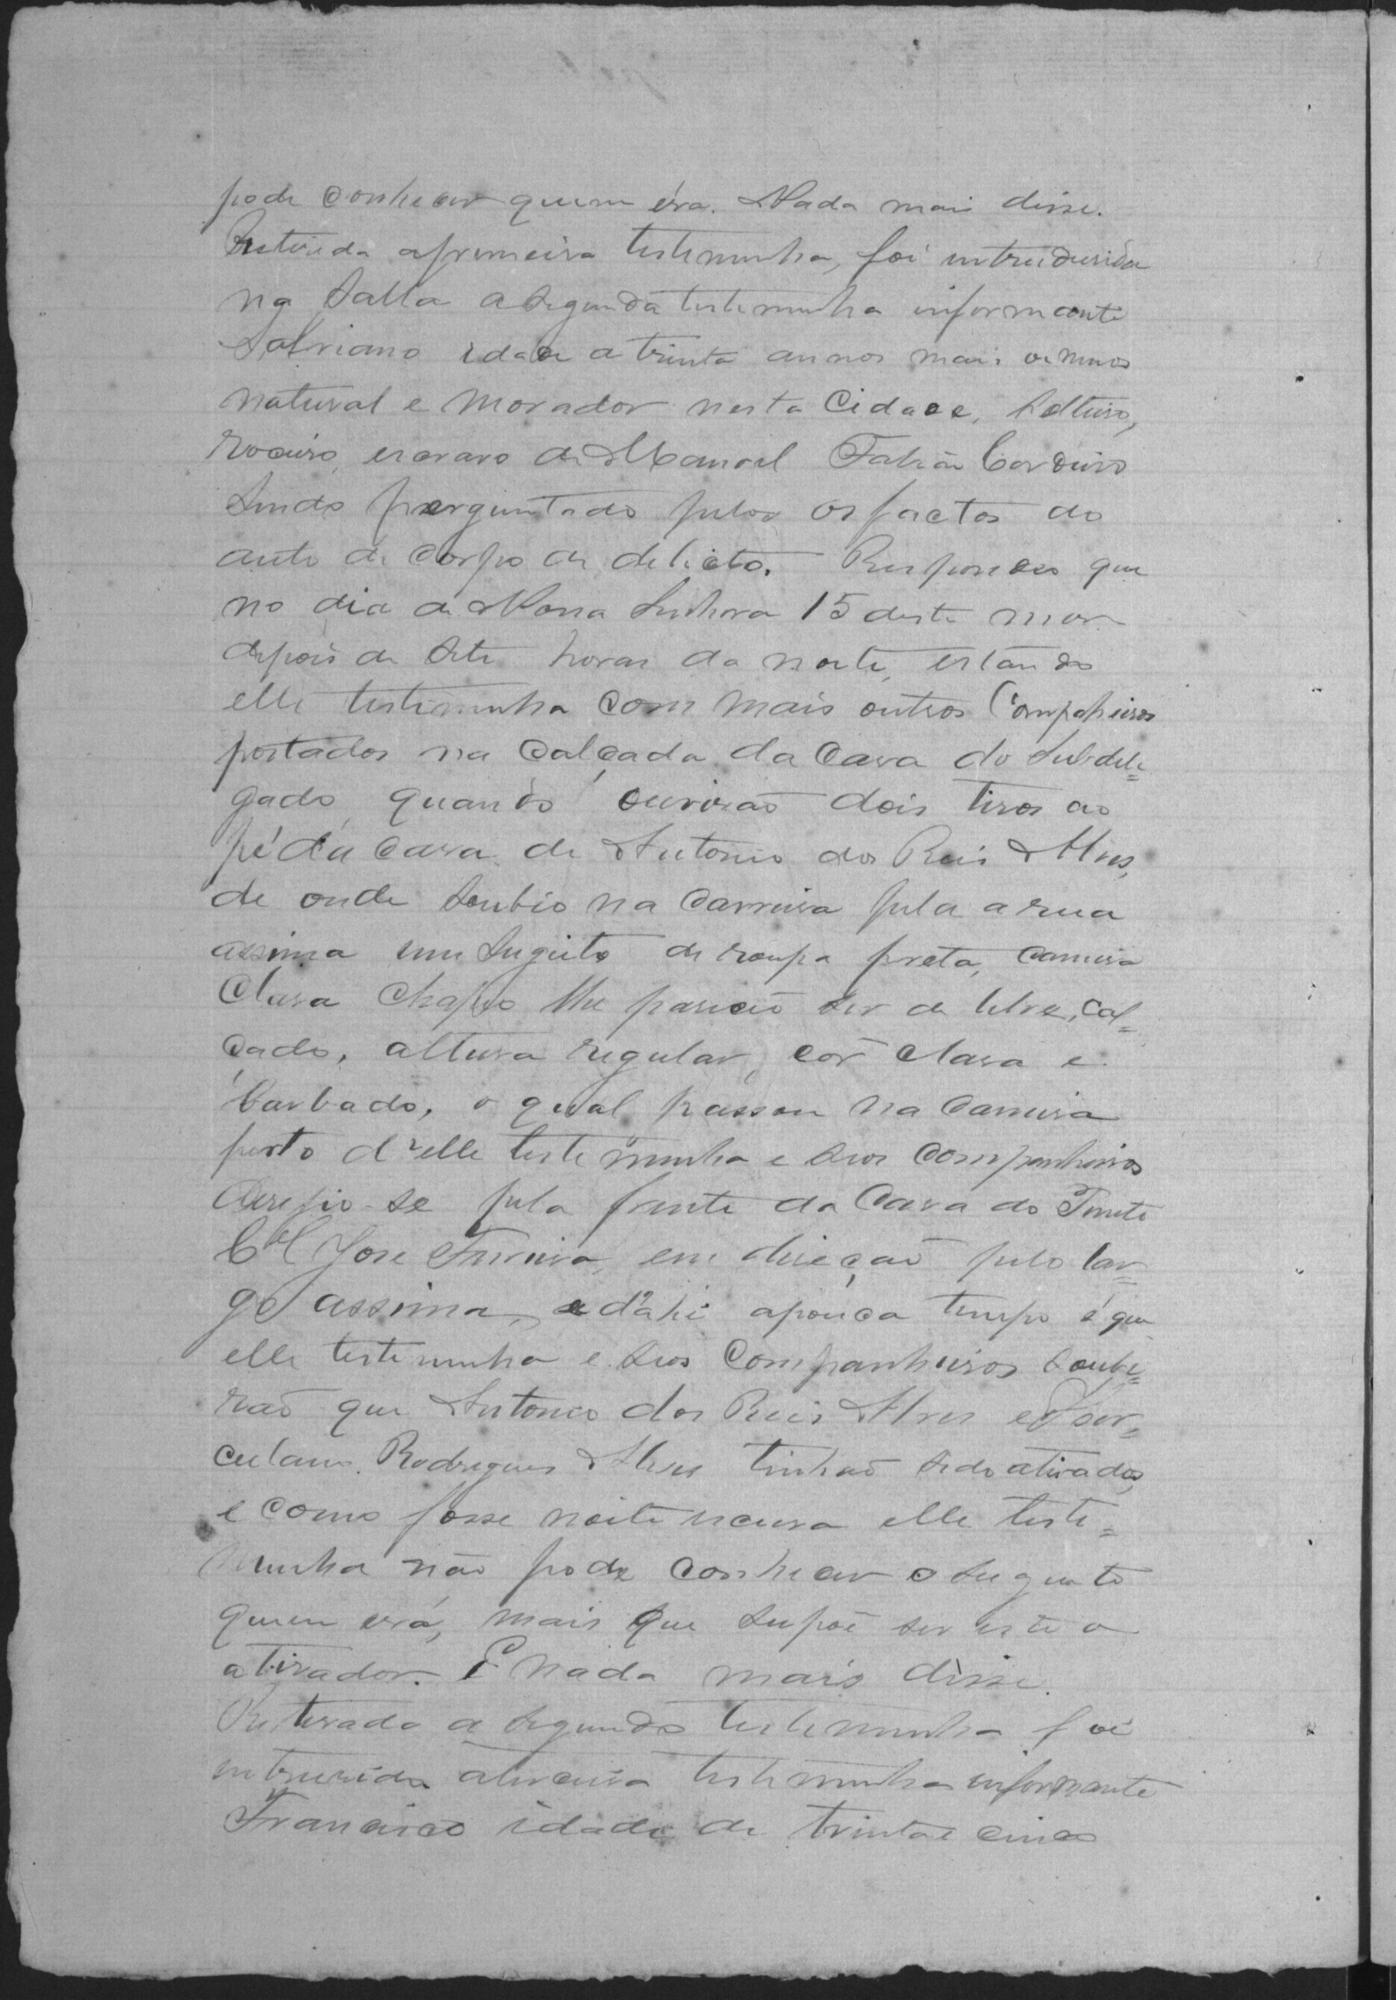 pode conhecer quem éra. Nada mais disse.
Retirada aprimeira testemunha, foi introdusida
na Salla a Segunda testemunha informante
idade a trinta annos mais ou menos
natural e morador nesta Cidade, Solteiro,
roceiro, escravo de Manoel Fabião Cordeiro
Sendo perguntado pelos os factos do
auto de Corpo de delicto. Respondeo que
no dia de Nossa Senhora 15 deste mes
depois de Sete horas da noite, estando
elle testemunha com mais outros Companheiros
postados na Calçada da Casa do Subdele=
gado, quando ouvirão dois tiros ao
pé da casa de Antonio dos Reis Alves,
de onde Soubio na Carreira pela a rua
assima um Sugeito de roupa preta, Camisa
Clara Chapeo lhe pareceo Ser de lebre, cal=
çado, altura regular, côr clara e
barbado, o qual passou na Carreira
perto d'elle testemunha e Seos Companheiros
se pela frente da Casa do Tenete
Cel José Ferreira, em direção pelo lar=
go assima, e d'ahi apouca tempo é que
elle testemunha e Seos Companheiros Soube=
rão que Antonio dos Reis Alves e Her=
culano Rodrigues Alves tinhão Sido atirados,
e como fosse noite escura elle teste=
munha não pode conhecer o Sugeito
quem erá, mais que Supoe ser este o
atirador. E nada mais disse.
Retirada a Segunda testemunha foi
introusida aterceira testemunha informante
Francisco idade de trinta e cinco